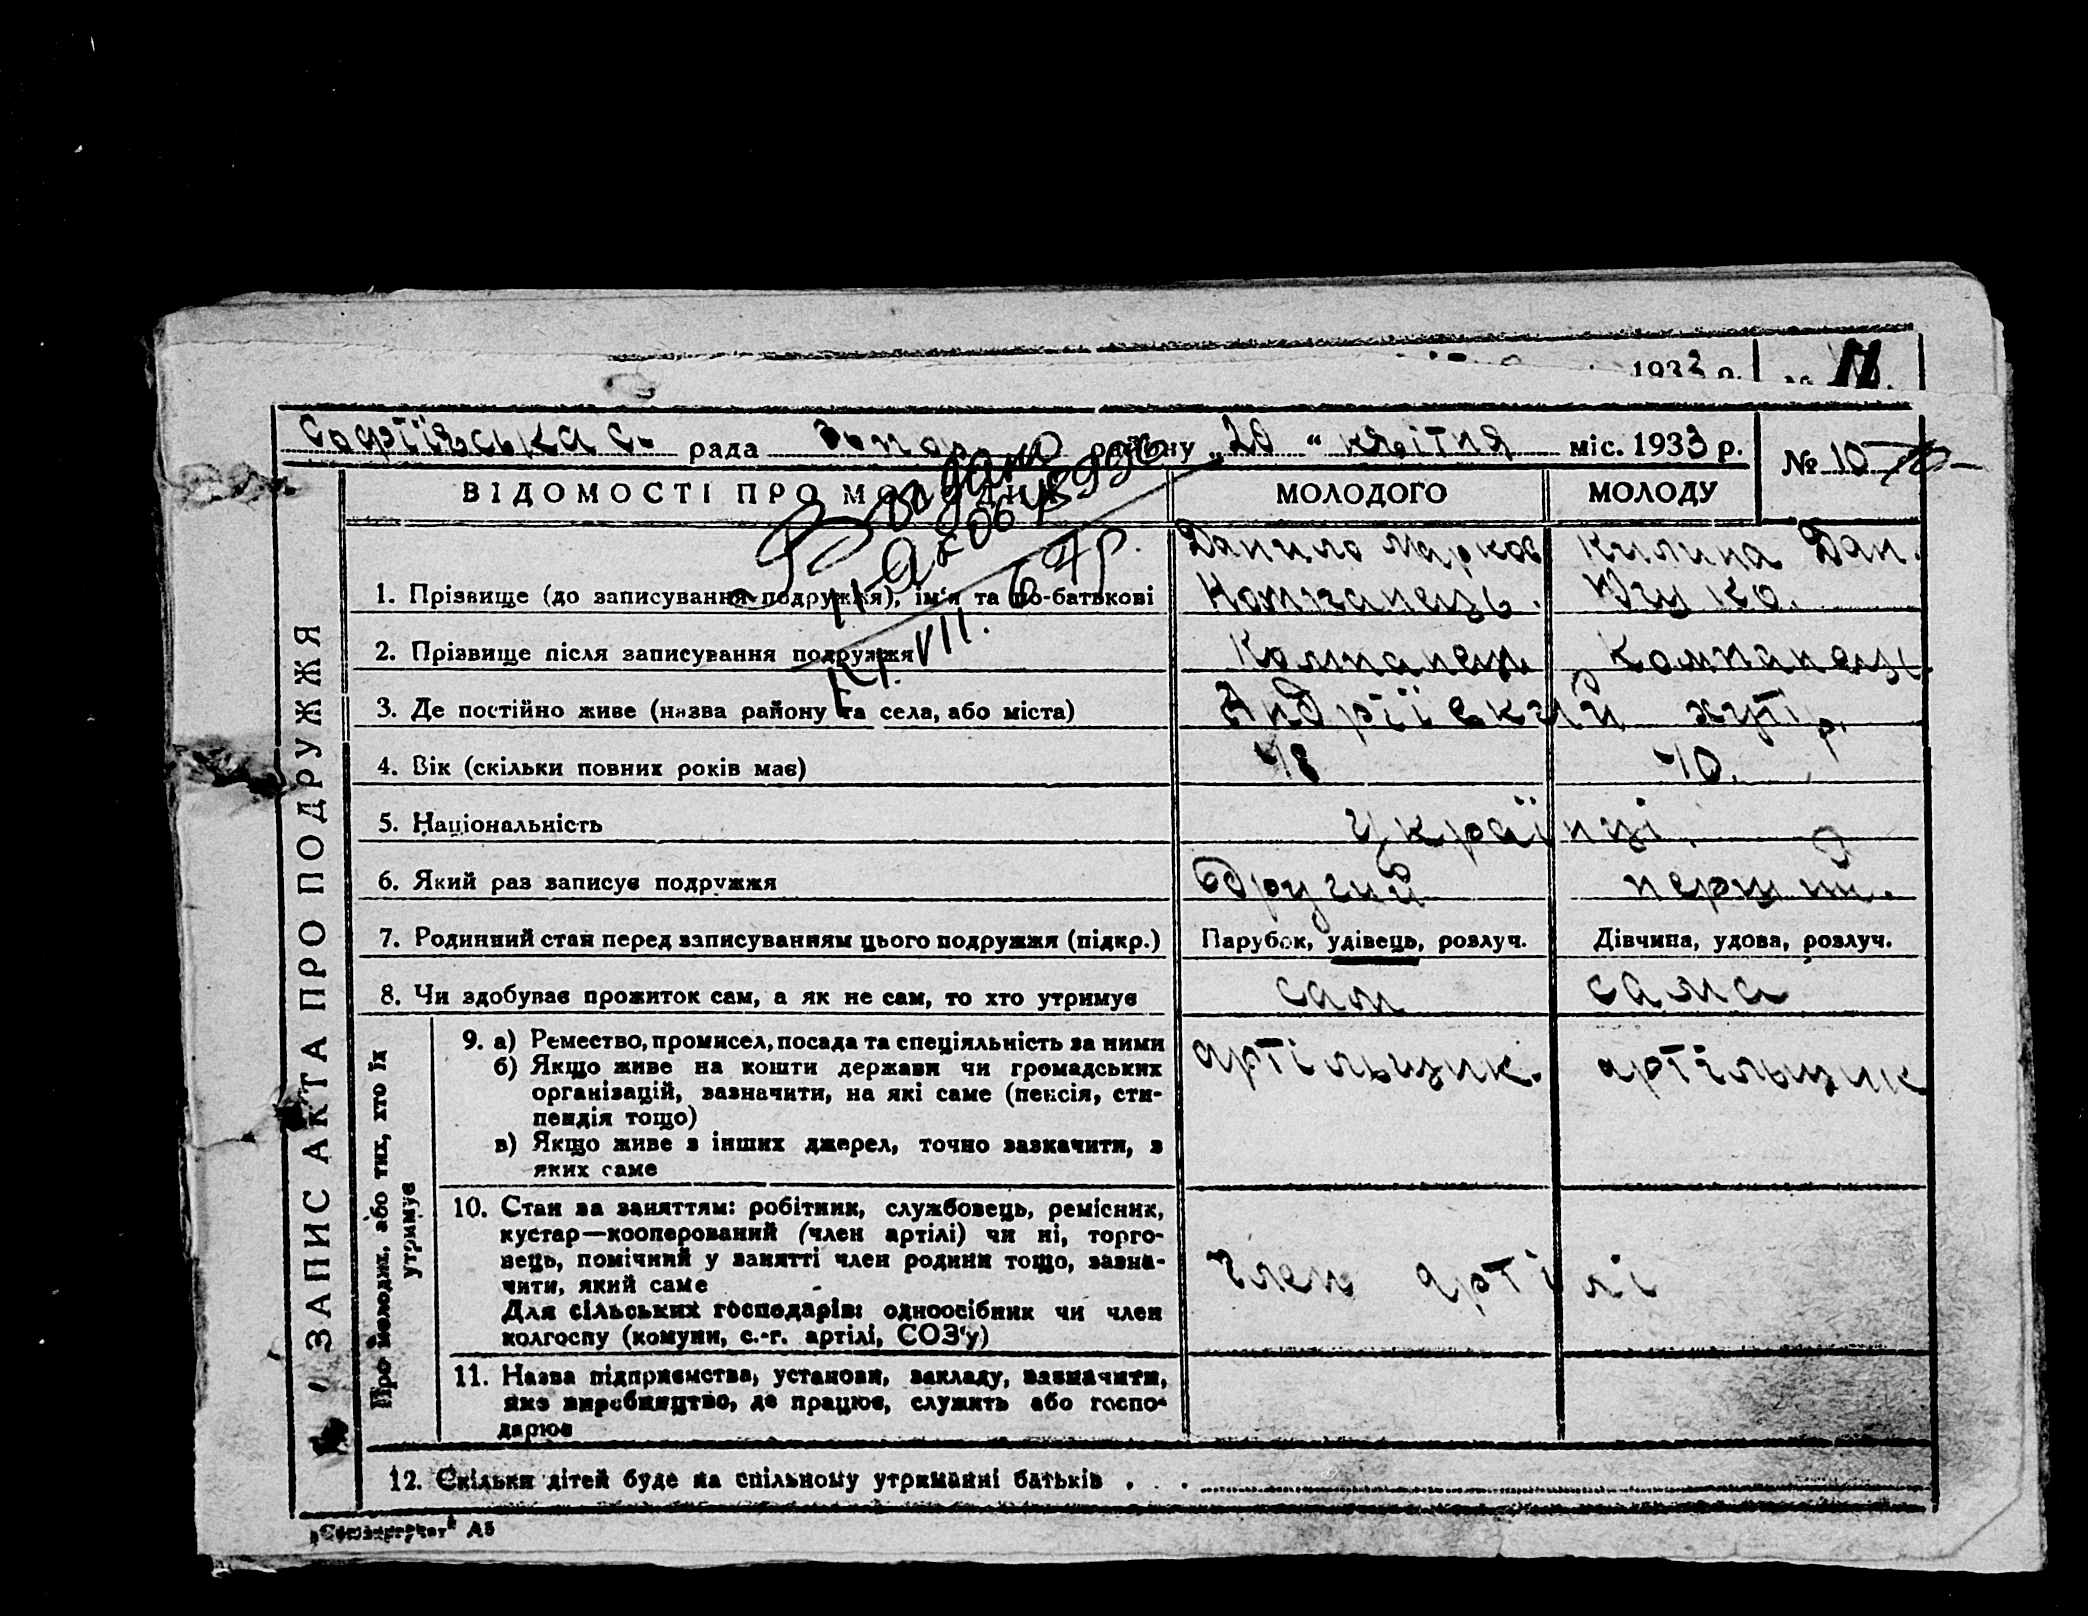 1933 р. № 11.
Софіївська с. рада Запор. району „20“ квітня міс. 1933 р.
№ 10
ВІДОМОСТІ ПРО МОЛОДИХ
МОЛОДОГО
МОЛОДУ
Видано
64 р.
VII.
ЗАПИС АКТА ПРО ПОДРУЖЖЯ
1. Прізвище (до записування подружжя), ім'я та по-батькові
Данило Марков
Компанець.
Килина Дан.
2. Прізвище після записування подружжя
Компанец.
Компанець.
3. Де постійно живе (назва району та села, або міста)
Андріївкий хутір.
4. Вік (скільки повних років має)
48
40.
5. Національність
Українці.
6. Який раз записує подружжя
Другий
перший.
7. Родинний стан перед записуванням цього подружжя (підкр.)
Парубок, удівець, розлуч.
Дівчина, удова, розлуч.
8. Чи здобуває прожиток сам, а як не сам, то хто утримує
сам
сама
Про молодих, або тих, хто їх утримує
9. а) Ремество, промисел, посада та спеціяльність за ними
б) Якщо живе на кошти держави чи громадських
організацій, зазначити, на які саме (пенсія, сти-
пендія тощо)
в) Якщо живе з інших джерел, точно зазначити, з
яких саме
артільщик.
артільщик
10. Стан за заняттям: робітник, службовець, ремісник,
кустар—кооперований (член артілі) чи ні, торго-
вець, помічний у занятті член родини тощо, зазна-
чити, який саме
Для сільських господарів: одноосібник чи член
колгоспу (комуни, с.-г. артілі, СОЗ'у)
Член артілі
11. Назва підприємства, установи, закладу, зазначити,
яке виробництво, де працює, служить або госпо-
дарює
12. Скільки дітей буде на спільному утриманні батьків . . .
А5